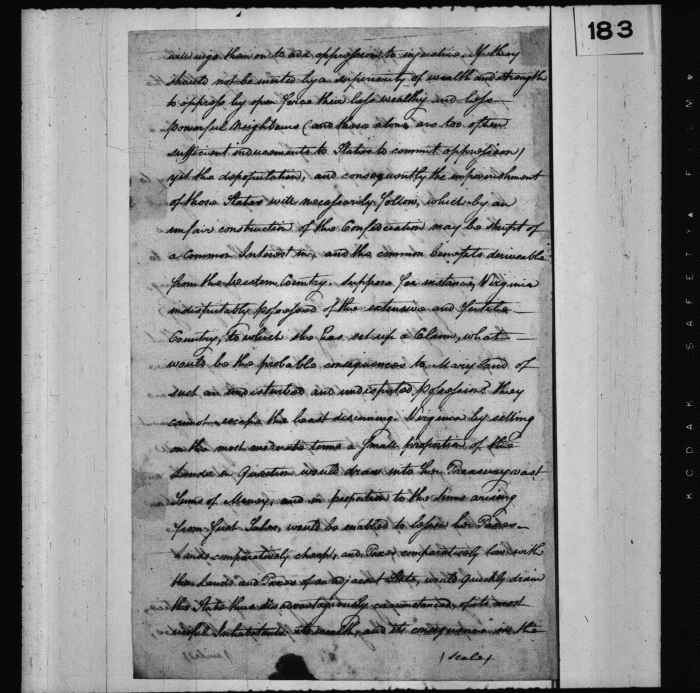 183
will urge them on to add oppression to injustice. If they
should not be incited by a superiority of wealth and strength
to oppress by open force their less wealthy and less
powerful Neighbours (and these alone are too often
sufficient inducements to States to commit oppression)
yet the depopulation, and consequently the impoverishment
of those States will necessarily follow, which by an
unfair construction of the Confederation may be stript of
a Common Interest in, and the common benefits deriveable
from the Western Country. Suppose for instance, Virginia
indisputably possessed of the extensive and fertile
Country, to which she has set up a Claim, what
would be the probable consequences to Maryland of
such an undisturbed and undisputed possession? they
cannot escape the least discerning. Virginia by selling
on the most moderate terms a Small proportion of the
Lands in Question would draw into her Treasury vast
Sums of Money, and in proportion to the Sums arising
from Such Sales, would be enabled to lessen her Taxes
Lands comparatively cheap, and Taxes comparatively low with
the Lands and Taxes of an adjacent State, would quickly drain
the State thus disadvantageously circumstanced, of its most
useful Inhabitants, its wealth, and its consequence in the
/scale/
KODAK SAFETY FILM